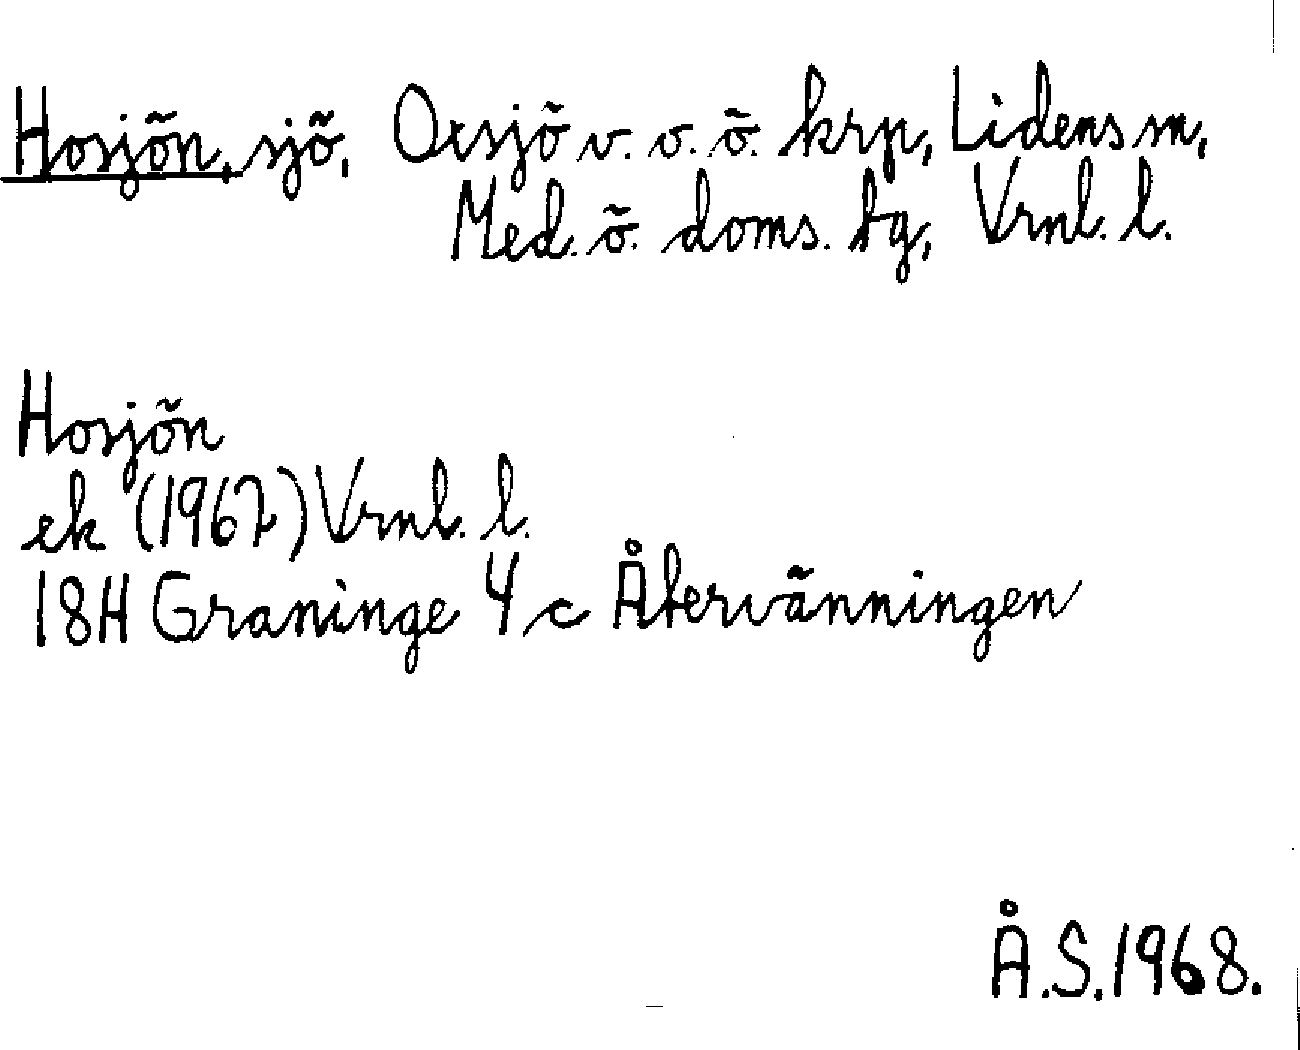 Hosjön, sjö, Oxsjö v. o. ö. krp, Lidens sn,
Med. ö. doms. tg, Vrnl. l.
Hosjön
ek (1967) Vrnl. l.
18H Graninge 4 c Återvänningen
Å.S. 1968.